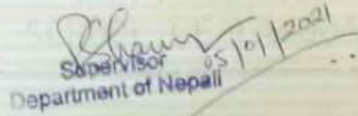 05/01/2021
Supervisor
Department of Nepali